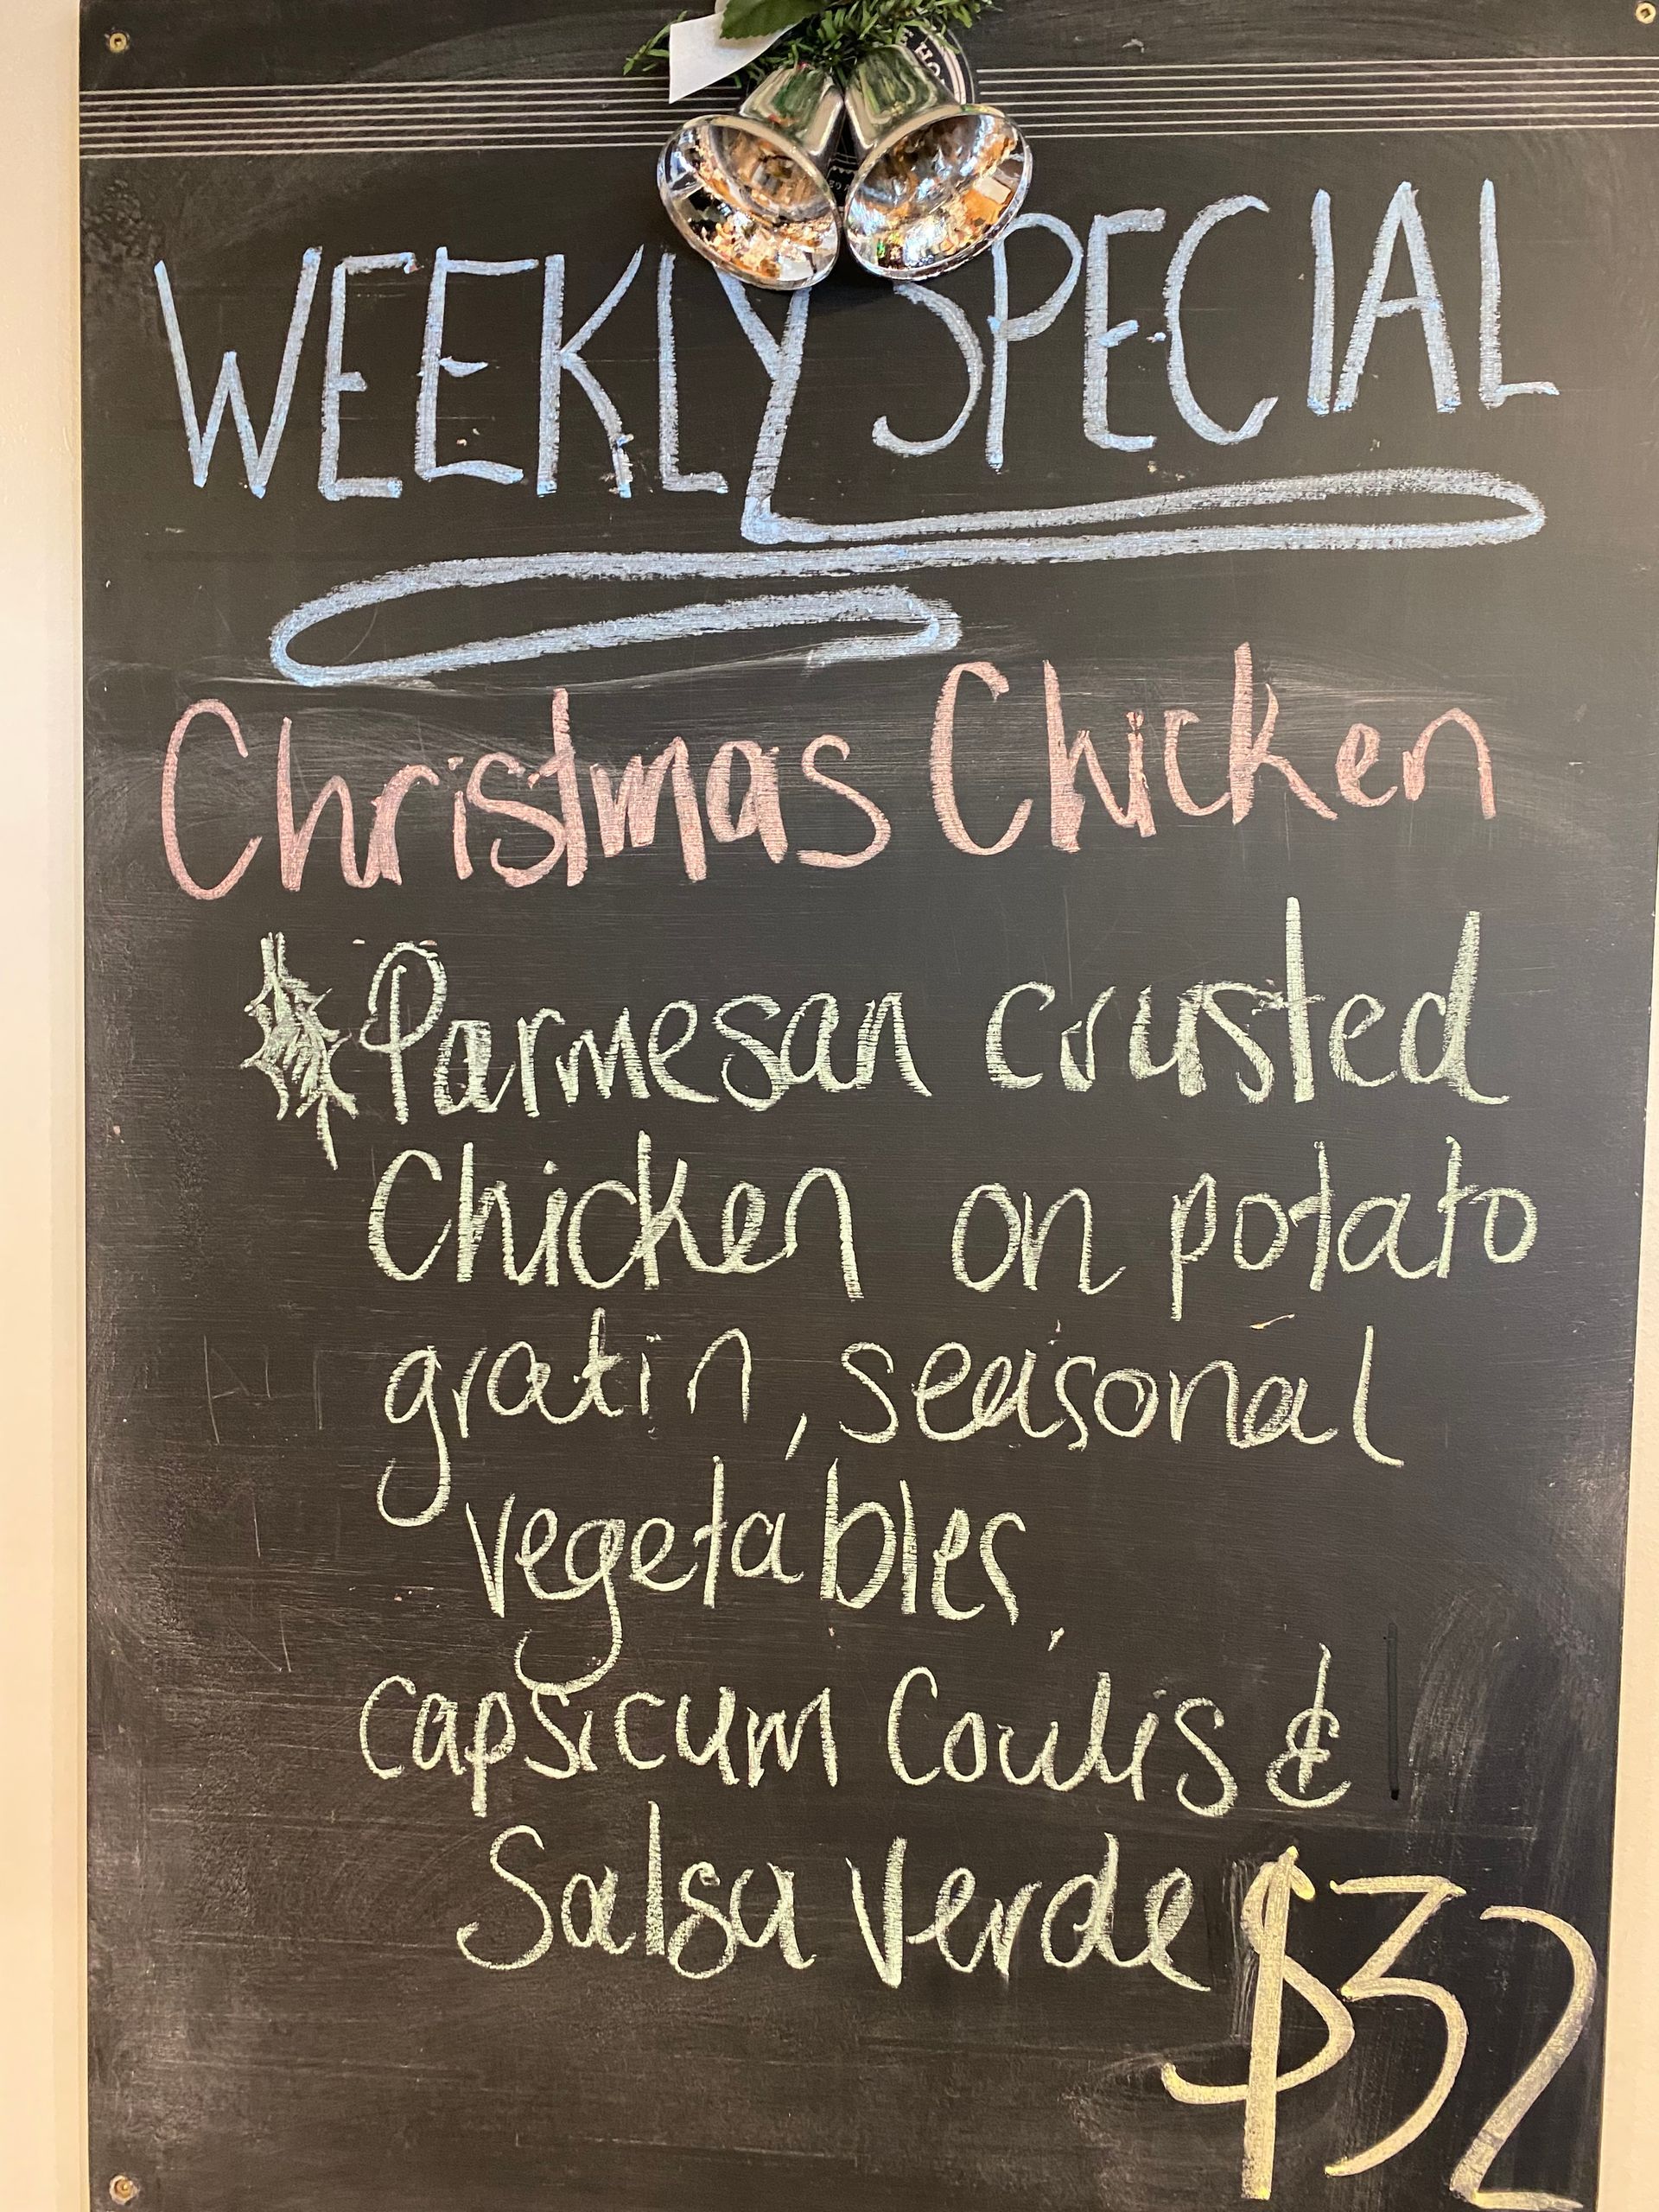 WEEKLY SPECIAL
Christmas Chicken
Parmesan crusted
Chicken on potato
gratin, seasonal
vegetables,
capsicum Coulis &
Salsa Verde
$32